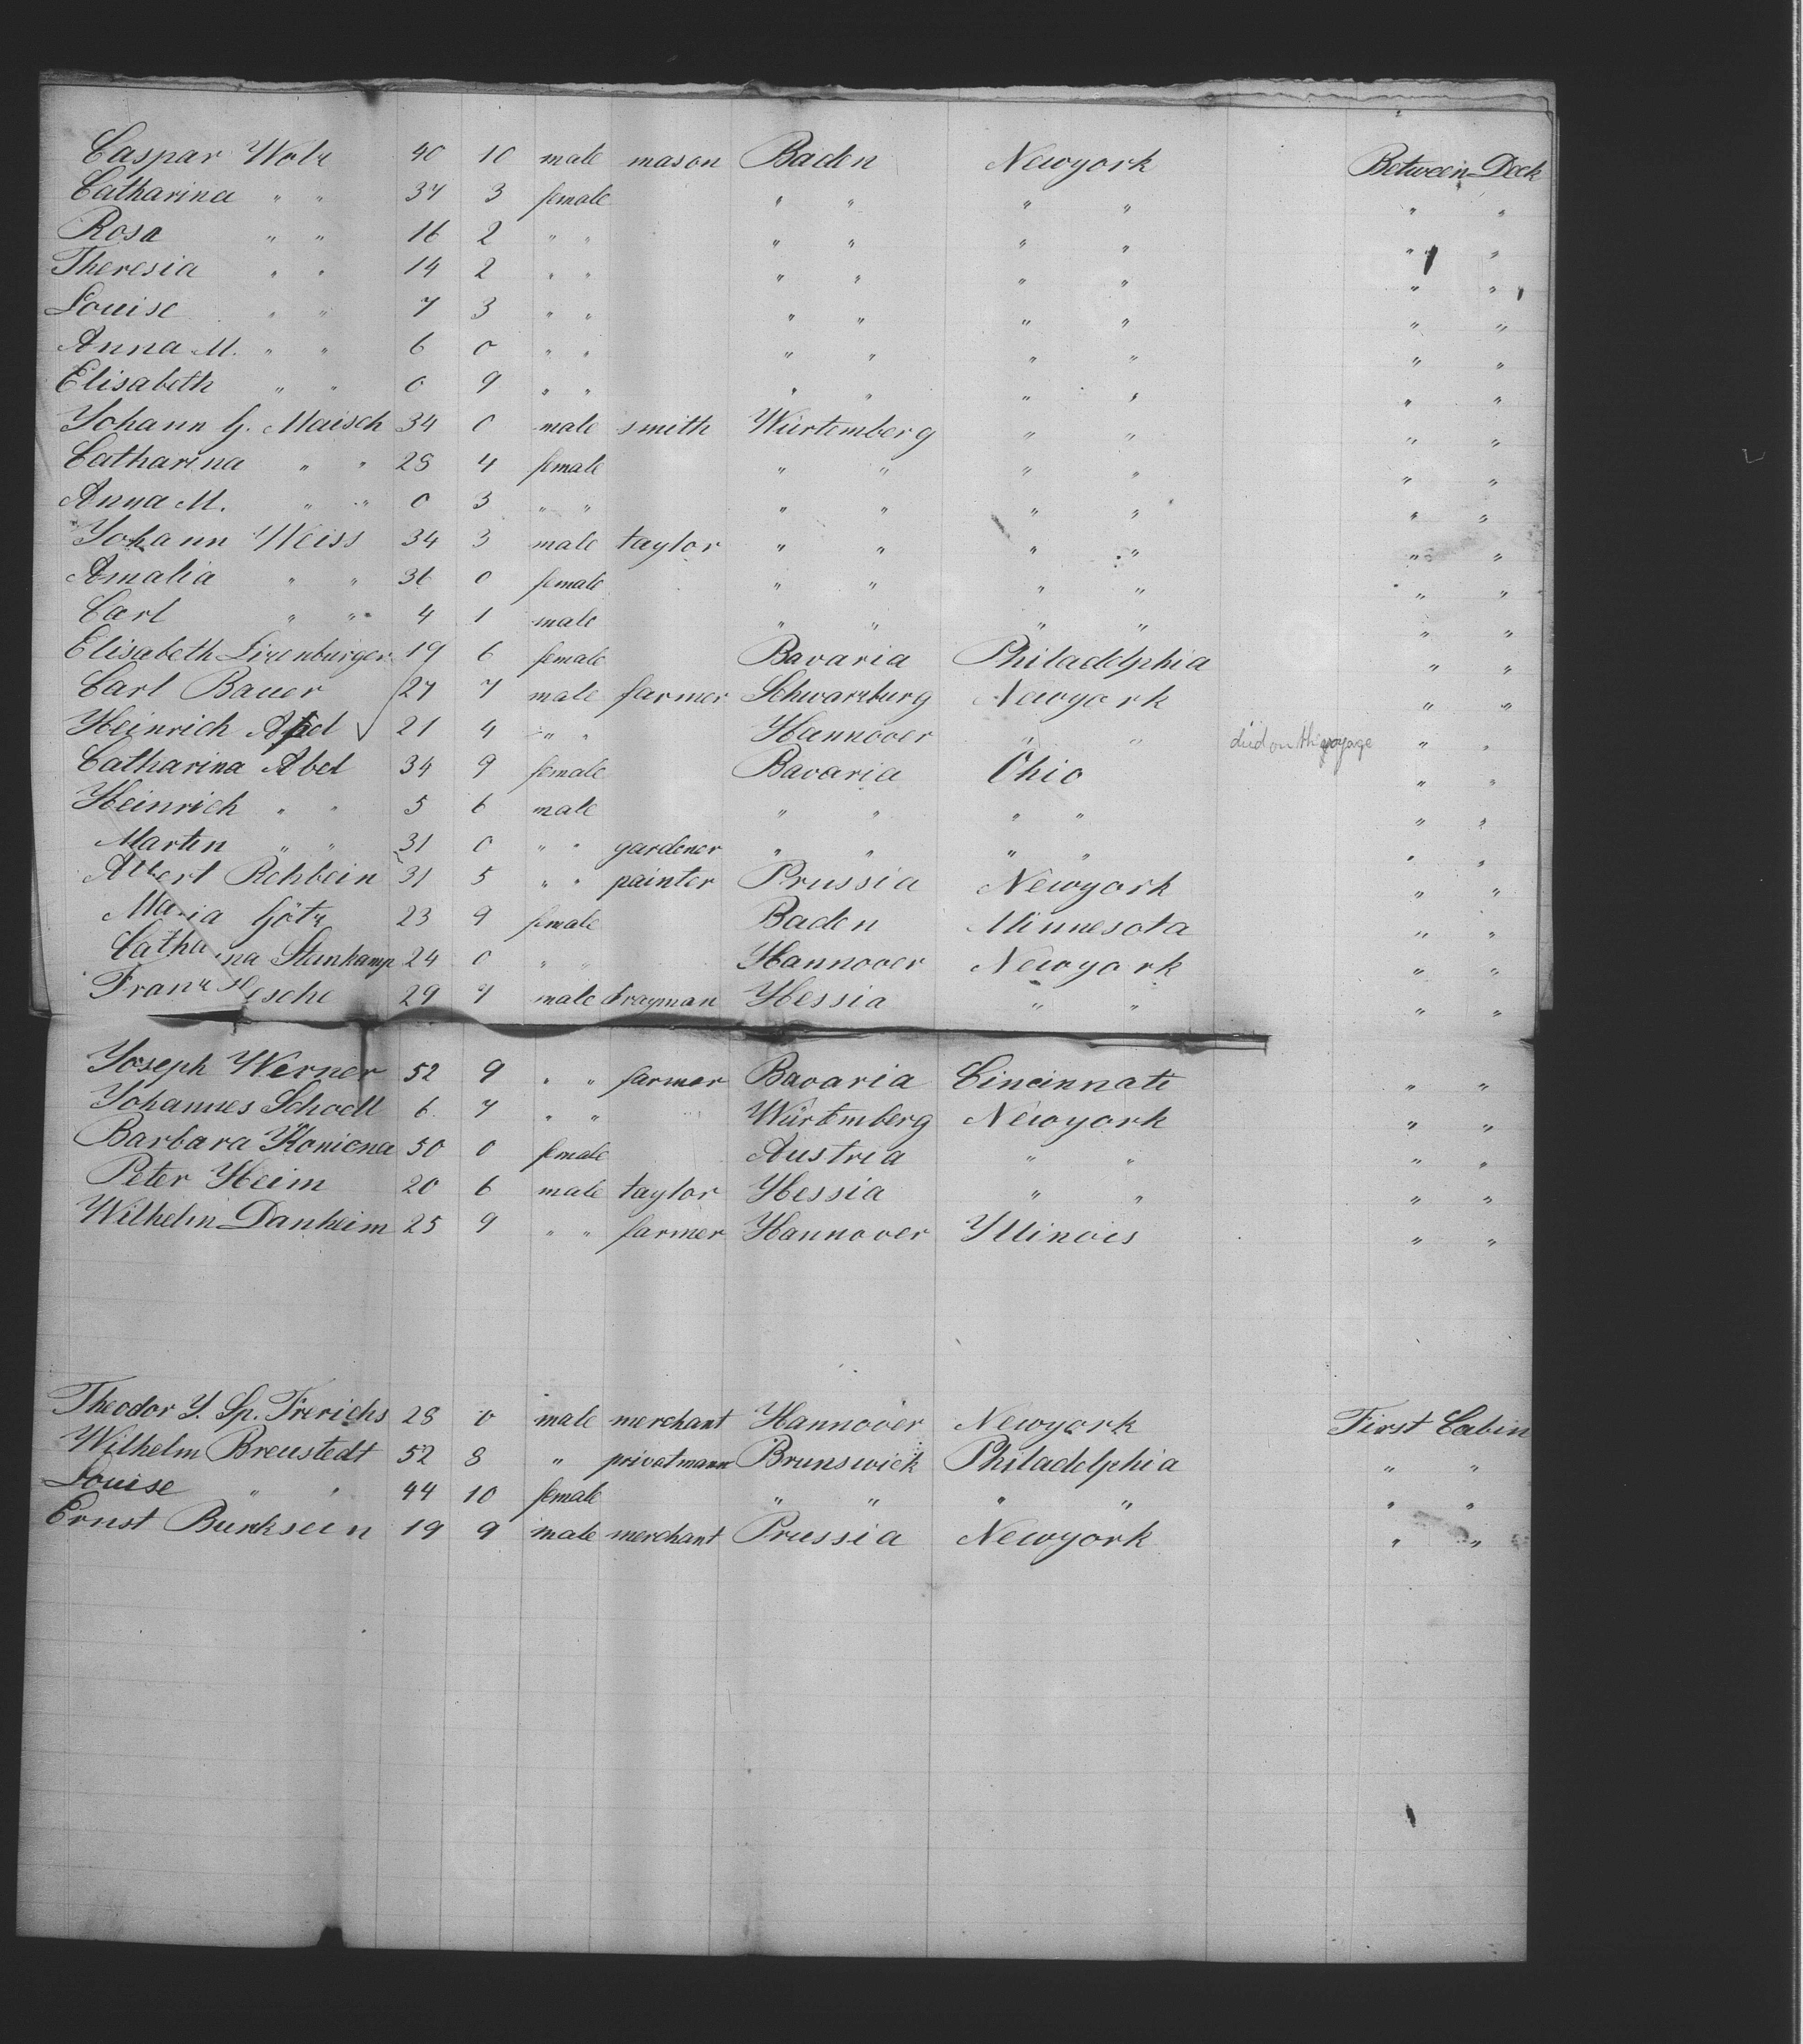 Caspar Walz 40 10 male mason Baden Newyork Between Deck
Catharina " " 37 3 female " " " " " "
Rosa " " 16 2 " " " " " " " "
Theresia " " 14 2 " " " " " " " "
Louise " " 7 3 " " " " " " " "
Anna M. " " 6 0 " " " " " " " "
Elisabeth " " 0 9 " " " " " " " "
Johann G. Maisch 34 0 male smith Würtemberg " " " "
Catharina " " 28 4 female " " " " " "
Anna M. " " 0 3 " " " " " " " "
Johann Weiss 34 3 male taylor " " " " " "
Amalia " " 36 0 female " " " " " "
Carl " " 4 1 male " " " " " "
Elisabeth 19 6 female Bavaria Philadelphia " "
Carl Bauer 27 7 male farmer Schwarzburg Newyork " "
Heinrich 21 4 " " Hannover " " died on the voyage " "
Catharina Abel 34 9 female Bavaria Ohio " "
Heinrich " " 5 6 male " " " " " "
Martin " " 31 0 " " gardener " " " " " "
Albert Rehbein 31 5 " " painter Prussia Newyork " "
Maria Götz 23 9 female Baden Minnesota " "
Catharina Stenkamp 24 0 " " Hannover Newyork " "
Franz 29 7 male drayman Hessia " " " "
Joseph Werner 52 9 " " farmer Bavaria Cincinnati " "
Johannes Schodt 6 7 " " Würtemberg Newyork " "
Barbara Koniena 50 0 female Austria " " " "
Peter Heim 20 6 male taylor Hessia " " " "
Wilhelm Danheim 25 9 " " farmer Hannover Illinois " "
Theodor J. Sp. Frerichs 28 0 male merchant Hannover Newyork First Cabin
Wilhelm Breustedt 52 8 " privatmann Brunswick Philadelphia " "
Louise " " 44 10 female " " " " " "
Ernst 19 9 male merchant Prussia Newyork " "